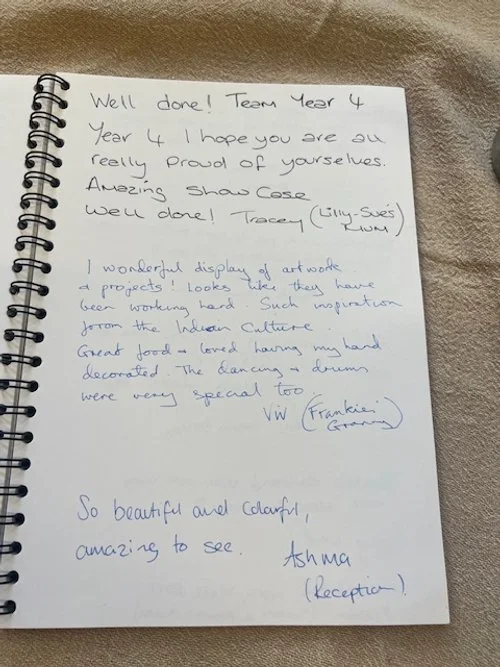 Well done! Team Year 4
Year 4 I hope you are all
really Proud of yourselves.
Amazing Show Case
Well done! Tracey (Lilly-Sue's
Mum)
I wonderful display of artwork
& projects! Looks like they have
been working hard. Such inspiration
from the Indian Culture.
Great food & loved having my hand
decorated. The dancing & drums
were very special too
Viv (Frankie's
Granny)
So beautiful and colorful,
amazing to see.
Ashma
(Reception)